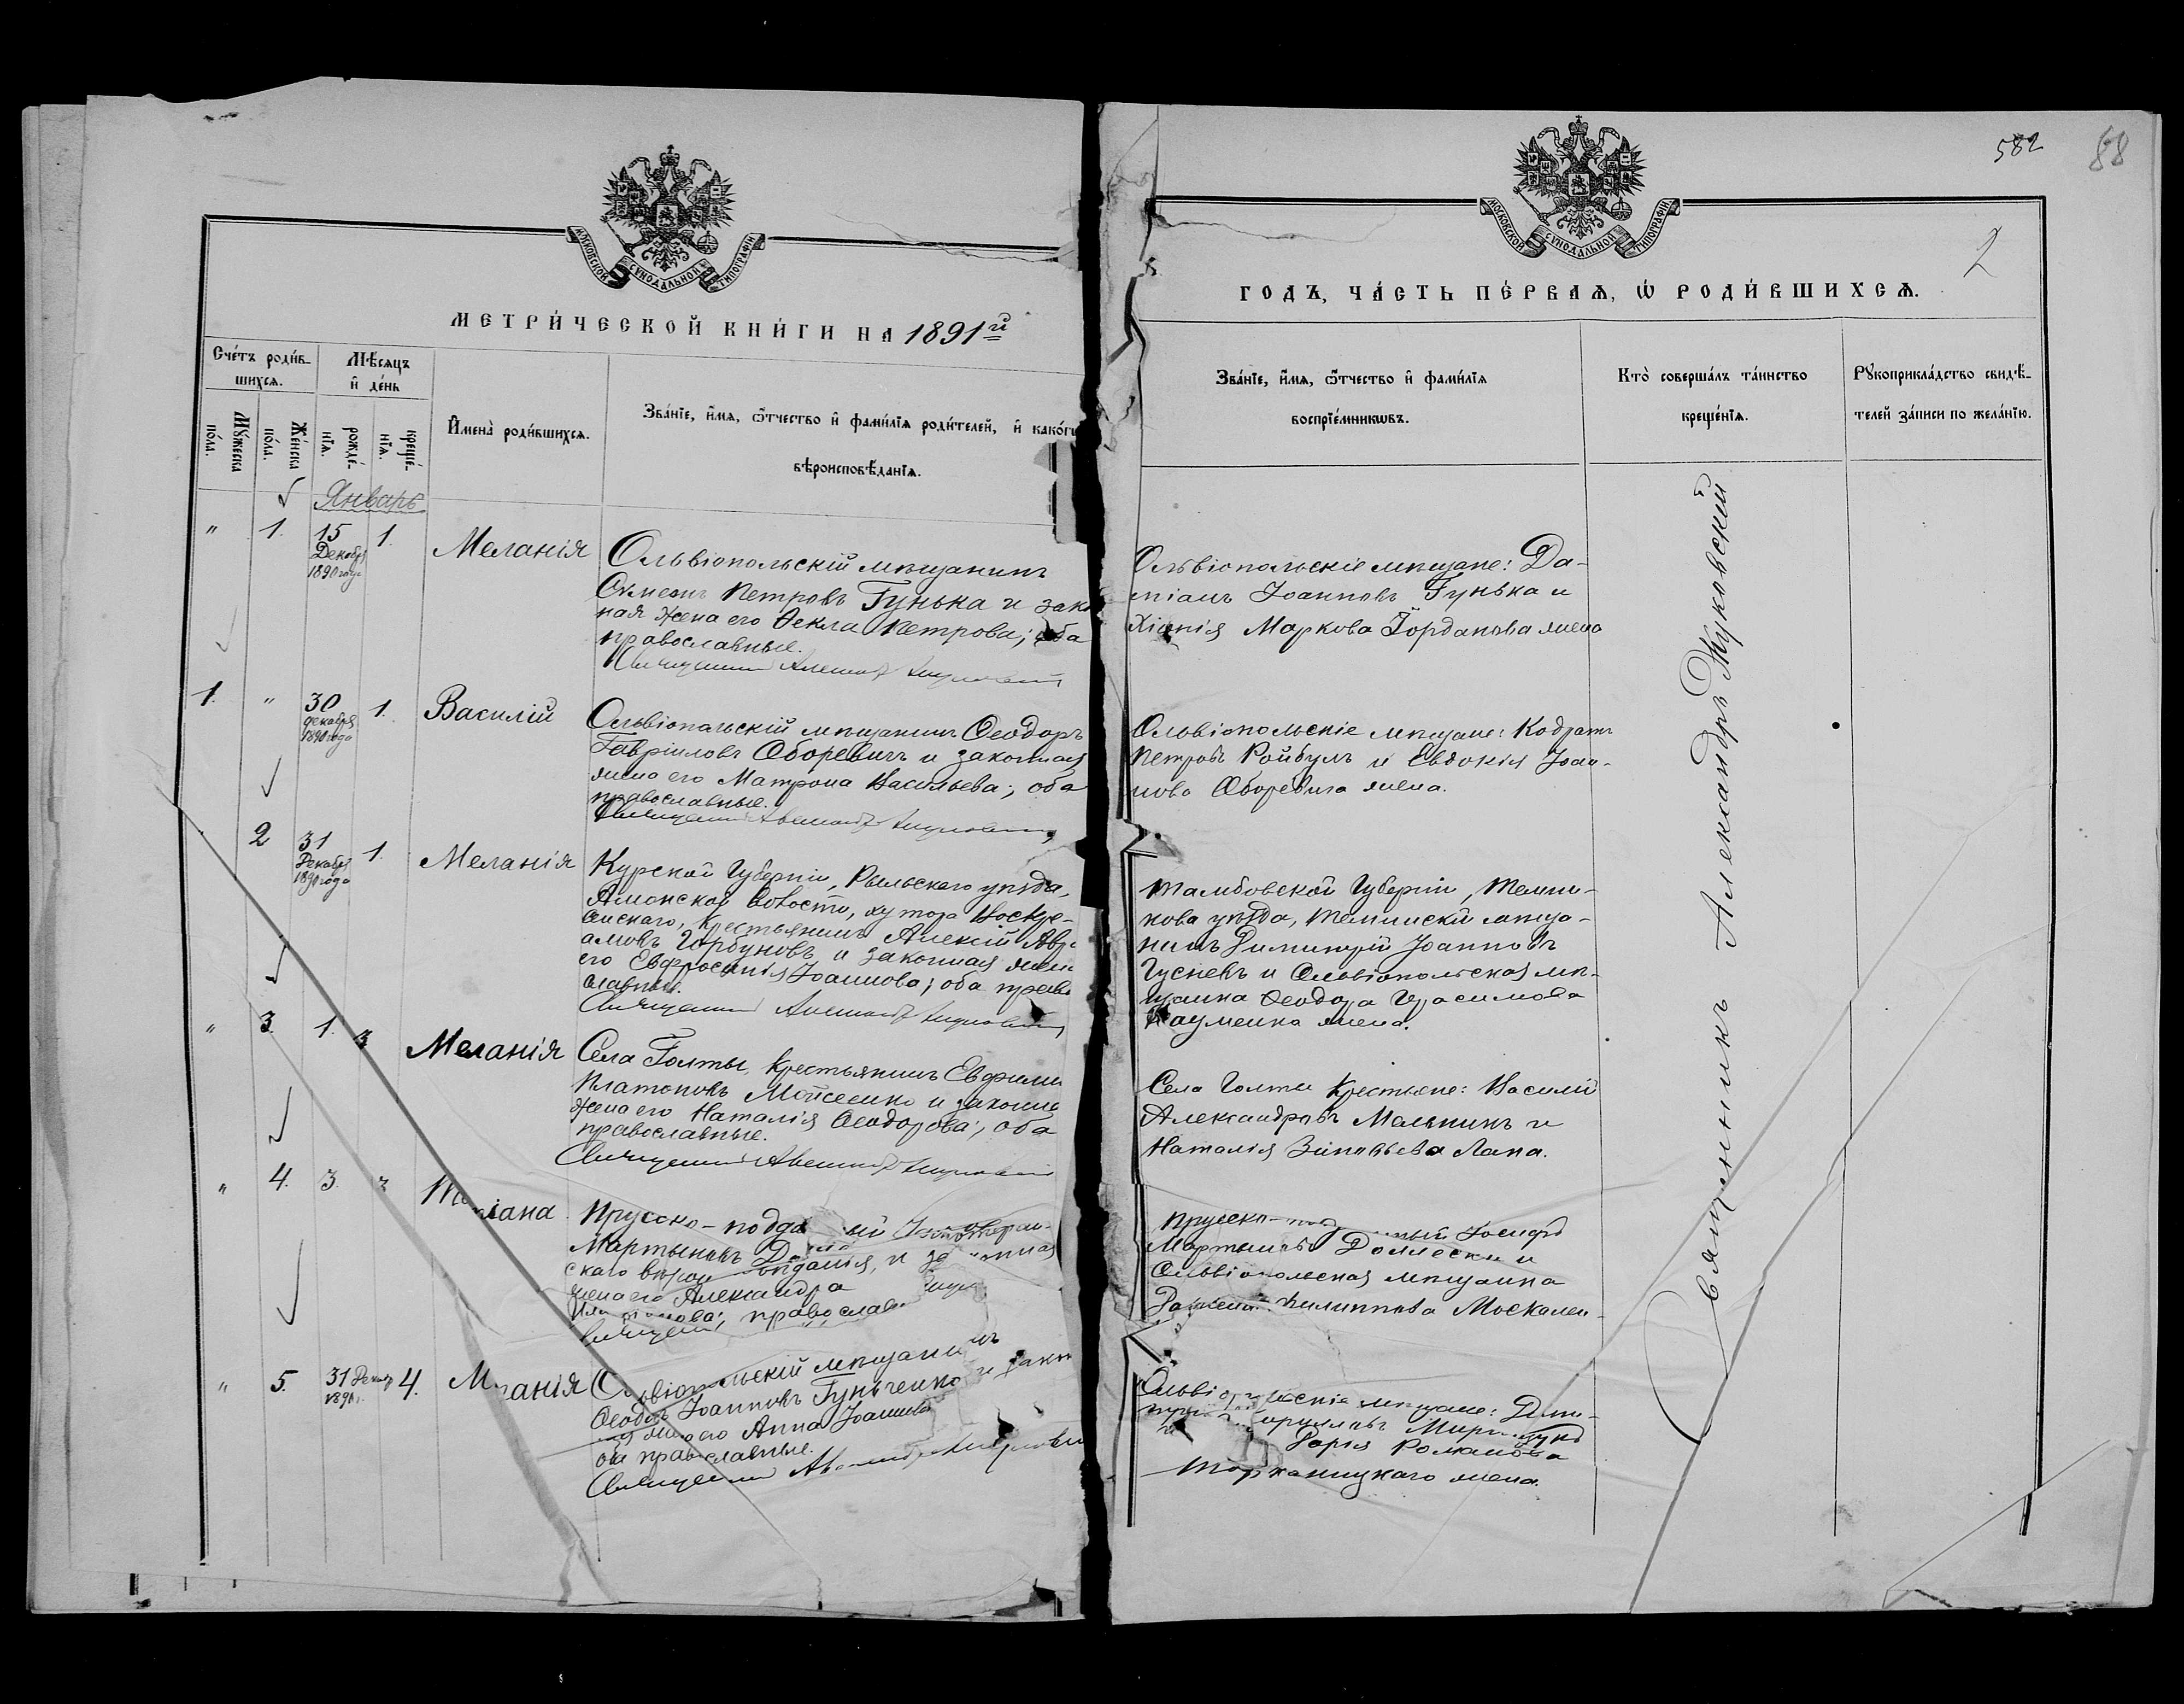 МОСКОВСКОЙ СУНОДАЛЬНОЙ ТИПОГРАФІИ
МЕТРИ́ЧЕСКОЙ КНИ́ГИ НА 1891й
Сче́тъ роди́в-
шихсѧ.
Мѣ́сѧцъ
и҆ де́нь
Мꙋ́жеска
по́ла.
Же́нска
по́ла.
рожде́-
нїѧ.
креще́-
нїѧ.
И҆мена̀ роди́вшихсѧ.
Зва́нїе, и҆́мѧ, ѻ҆́тчество и҆ фами́лїѧ роди́телей, и҆ како́гѡ
вѣроисповѣ́данїѧ.
Январь
" 1. 15 Декабр 1890 года 1. Меланія
Ольвіопольскій мѣщанинъ
Сумеонъ Петровъ Гунька и зако
ная жена его Ѳекла Петрова; оба
православные.
Священникъ Александръ Жуковскій
1. " 30 декабря 1890 года 1. Василій
Ольвіопольскій мѣщанинъ Ѳеодоръ
Гавріиловъ Оборевичъ и законная
жена его Матрона Васильева; оба
православные.
Священникъ Александръ Жуковскій
2 31 Декабр 1890 года 1. Меланія
Курской Губерніи, Рыльскаго уѣзда,
Амонской Волости, хутора Воскре-
сенскаго, Крестьянинъ Алексій Авр
амовъ Горбуновъ и законная жен
его Евфросинія Іоаннова; оба право
славные.
Священникъ Александръ Жуковскій
" 3. 1. 3 Меланія
Села Голты, Крестьянинъ Евфимі
Платоновъ Мойсеенко и законна
жена его Наталія Ѳеодорова; оба
православные.
Священникъ Александръ Жуковскій
" 4. 3. 3 іана
Прусско-подда ый
Мартыновъ
скаго вѣроисп вѣданія, и за нная
жена его Александра
нова; православ
Священ
" 5. 31 Декабр 1890 г. 4. М анія
Ольвіопольскій мѣщанинъ
Ѳеодоръ Іоанновъ Гунченко и закон
ная жена его Анна Іоаннова
оба православные.
Священникъ Александръ Жуковскій
582
88
МОСКОВСКОЙ СУНОДАЛЬНОЙ ТИПОГРАФІИ
2
ГОДЪ, ЧА́СТЬ ПЕ́РВАѦ, Ѡ҆ РОДИ́ВШИХСѦ.
Зва́нїе, и҆́мѧ, ѻ҆́тчество и҆ фами́лїѧ
воспрїе́мникѡвъ.
Кто̀ соверша́лъ та́инство
креще́нїѧ.
Рꙋкоприкла́дство свидѣ́-
телей за́писи по жела́нїю.
Ольвіопольскіе мѣщане: Да-
міанъ Іоанновъ Гунька и
Хіонія Маркова Іорданова жена
Ольвіопольскіе мѣщане: Кодратъ
Петровъ Ройбулъ и Евдокія Іоан-
нова Оборевича жена.
Тамбовской Губерніи, Темни-
кова уѣзда, Темник͏скій мѣща-
нинъ Димитрій Іоанновъ
Гусневъ и Ольвіопольская мѣ-
щанка Ѳеодора Герасимова
Науменка жена.
Села Голты Крестьяне: Василій
Александровъ Мальникъ и
Наталія Зіновьева Лапа.
Прусско-под ный Іосифъ
Мартыновъ и
Ольвіопольская мѣщанка
Филиппова Москален-
Ольвіоп льскіе мѣщане: Дими-
трій ирилловъ
Дарія Романова
Торканицкаго жена.
Священникъ Александръ Жуковскій